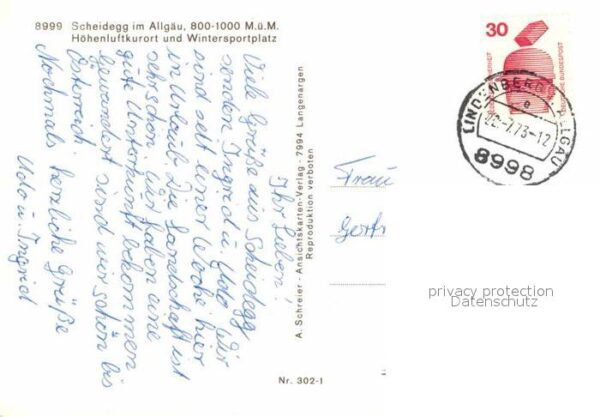 8999 Scheidegg im Allgäu, 800-1000 M.ü.M.
Höhenluftkurort und Wintersportplatz
Ihr Lieben!
Viele Grüße aus Scheidegg,
senden Ingrid u. Udo. Wir
sind seit einer Woche hier
in Urlaub. Die Landschaft ist
sehr schön. Wir haben eine
gute Unterkunft bekommen
gewandert sind wir schon bis
Österreich.
Nochmals herzliche Grüße
Udo u. Ingrid
A. Schreier - Ansichtskarten-Verlag - 7994 Langenargen
Reproduktion verboten
Nr. 302-1
30
DEUTSCHE BUNDESPOST
LINDENBERG
ALLGÄU
e
22.-7.73-12
8998
Frau
Gertr
privacy protection
Datenschutz